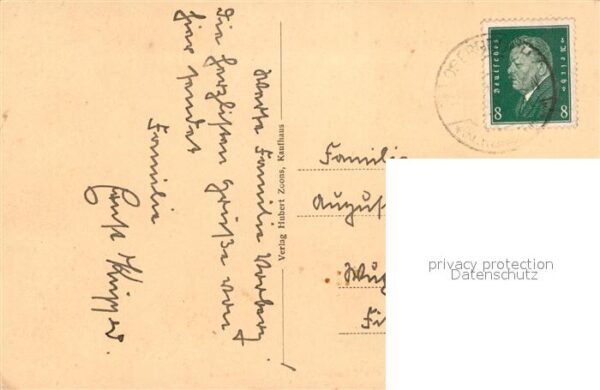 Werte Familie Vorberg!
Die herzlichen Grüße von
hier sendet
Familie
Ernst Küpper.
Verlag Hubert Zoons, Kaufhaus
Deutsches Reich
8 8
Familie
August
privacy protection
Datenschutz